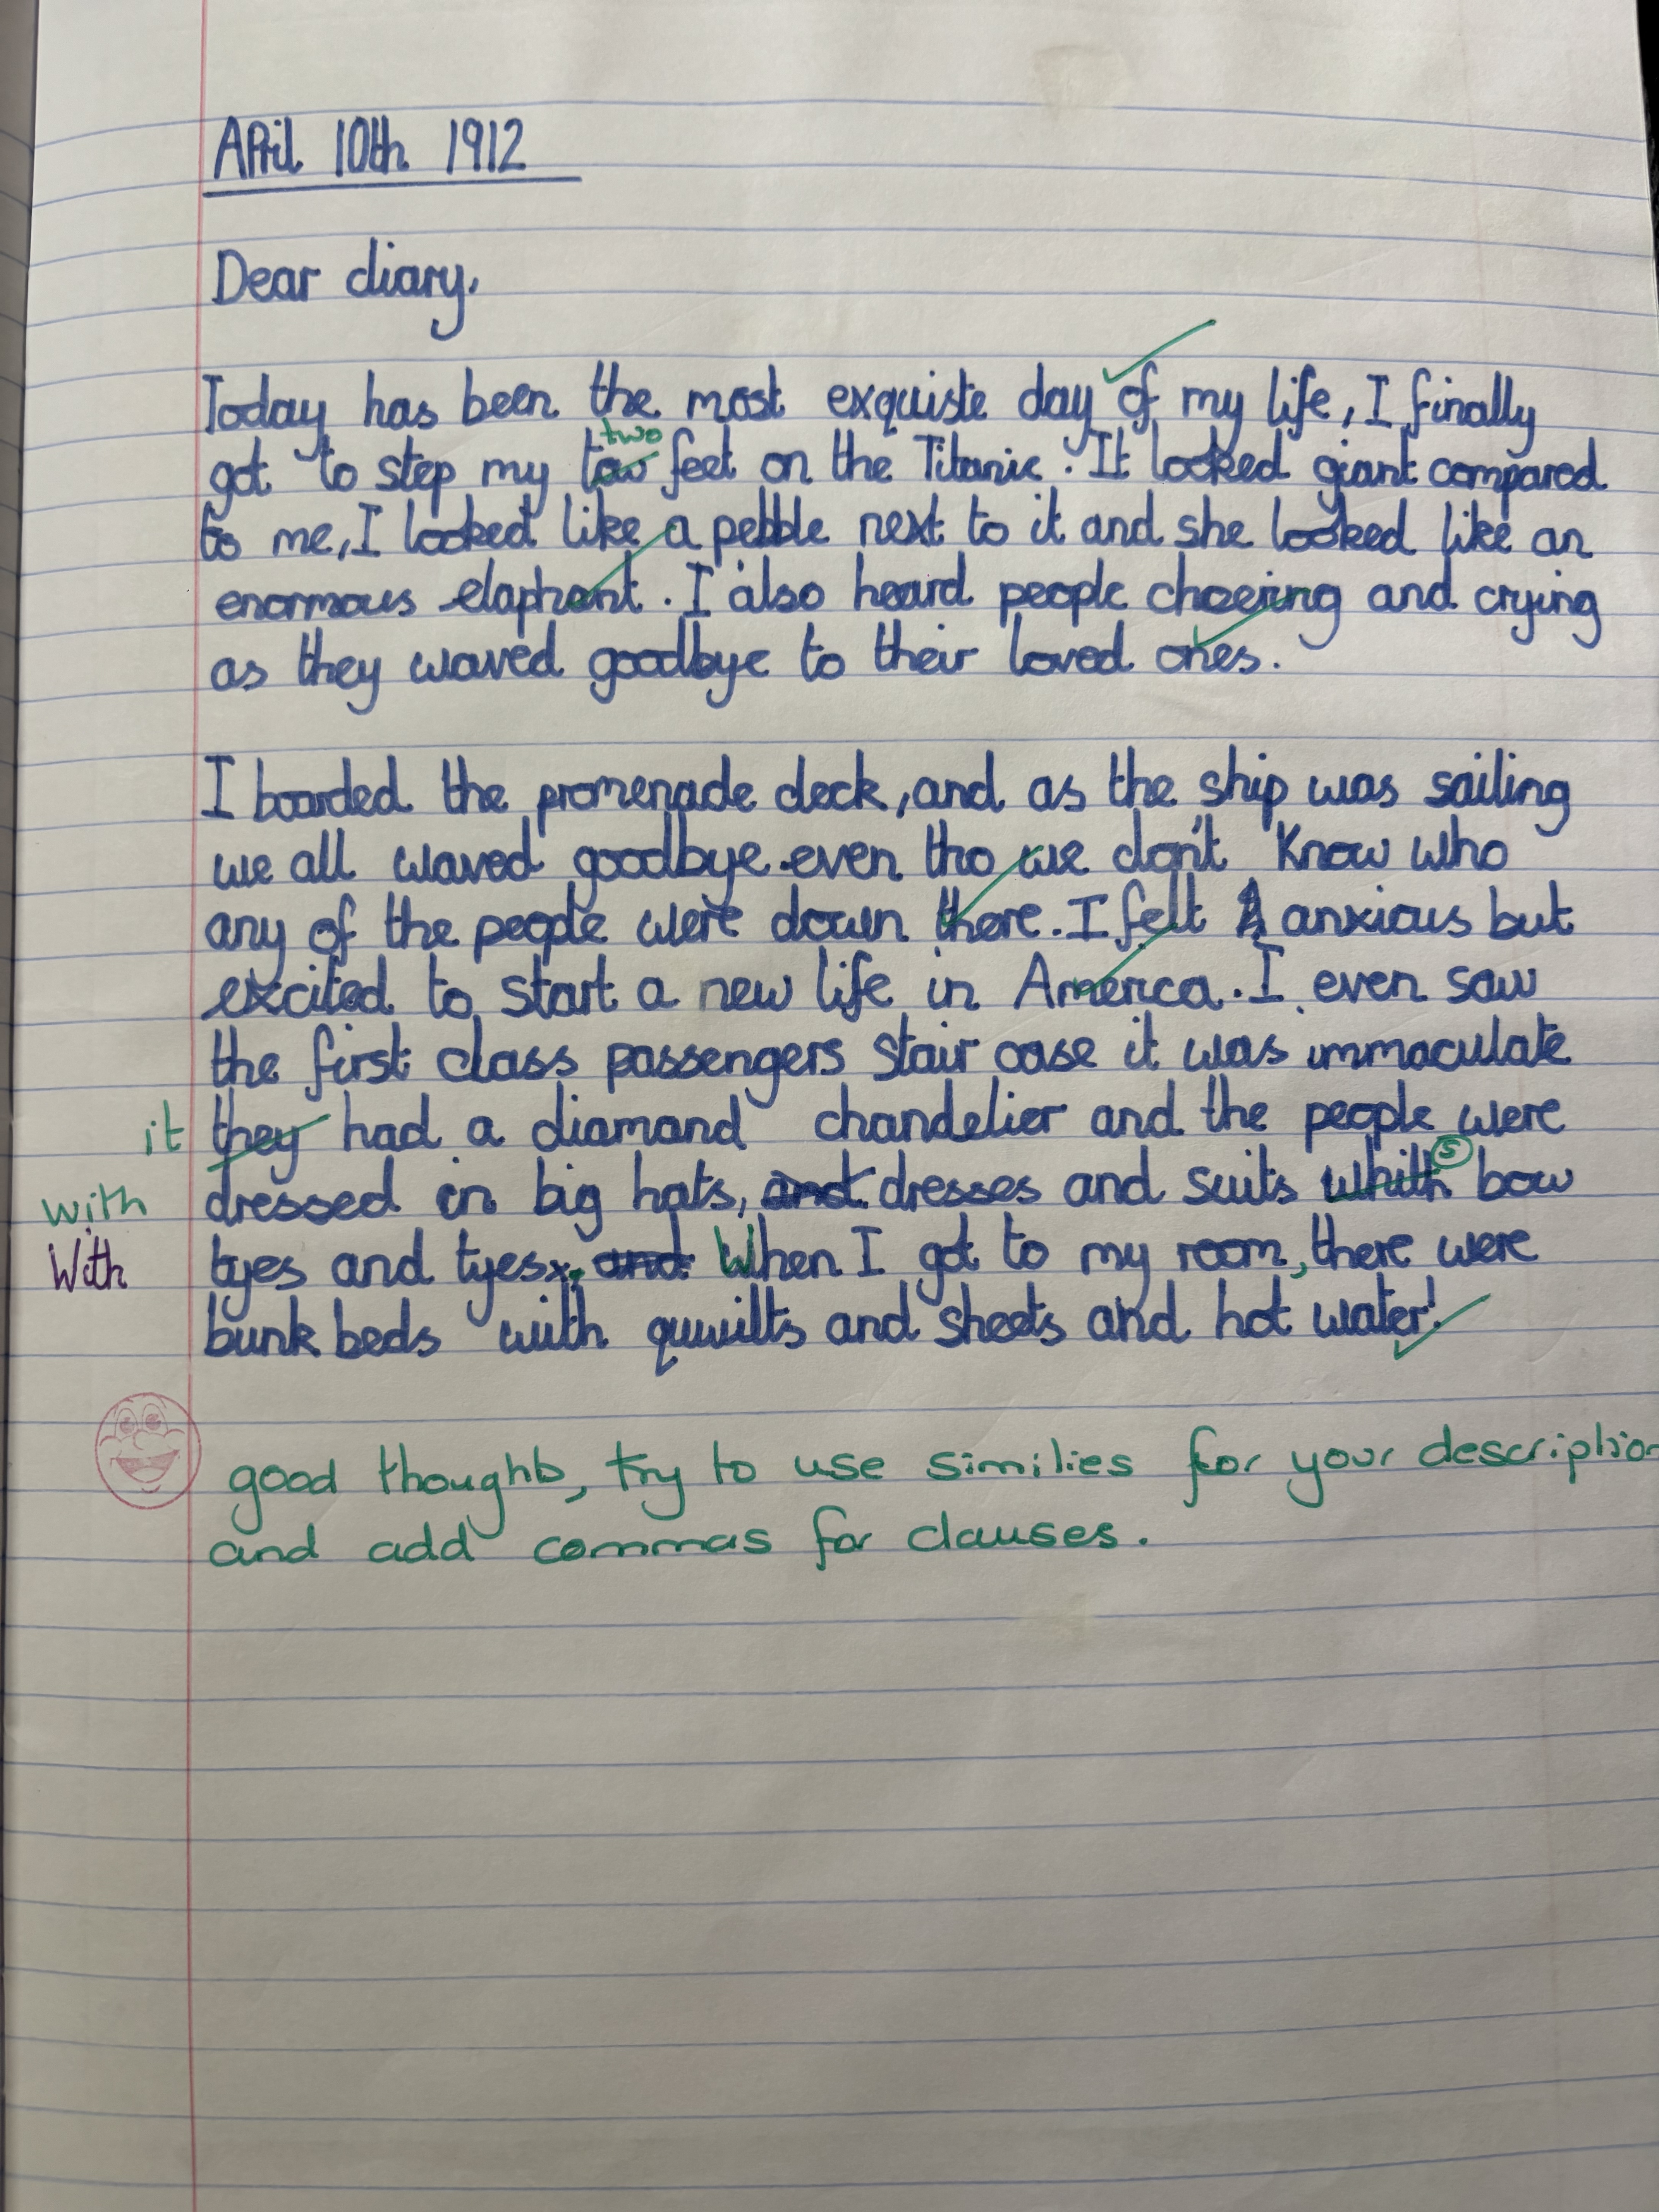 April 10th 1912
Dear diary,
Today has been the most exquiste day of my life, I finally
two
got to step my tow feet on the Titanic. It looked giant compared
to me, I looked like a pebble next to it and she looked like an
enormous elaphant. I also heard people cheering and crying
as they waved goodbye to their loved ones.
I boarded the promenade deck, and as the ship was sailing
we all waved goodbye.even tho we don't know who
any of the people were down there. I felt A anxious but
excited to start a new life in America. I even saw
the first class passengers stair case it was immaculate
it they had a diamond chandelier and the people were
with dressed in big hats, and dresses and suits whith (S) bow
With tyes and tyes. and When I got to my room, there were
bunk beds with quwilts and sheets and hot water!
good thoughts, try to use similies for your description
and add commas for clauses.